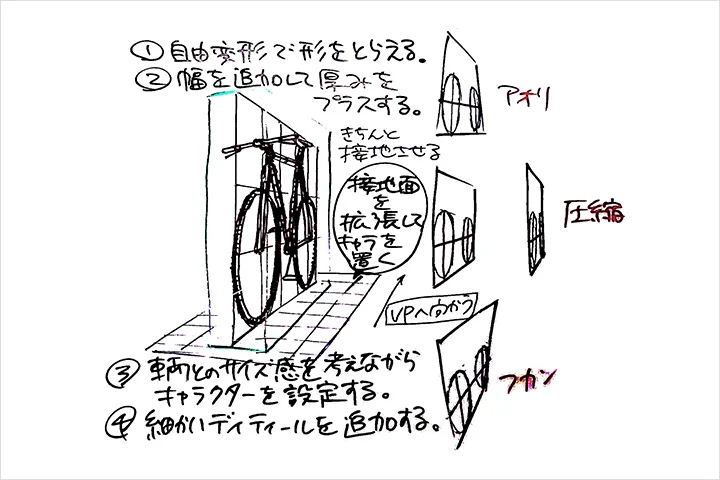 ① 自由変形で形をとらえる。
② 幅を追加して厚みを
プラスする。
きちんと
接地させる
接地面
を
拡張して
キャラを
置く
VPへ向かう
③ 車両とのサイズ感を考えながら
キャラクターを設定する。
④ 細かいディティールを追加する。
アオリ
圧縮
フカン